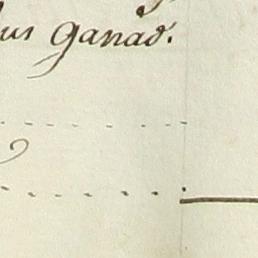 us Ganad.